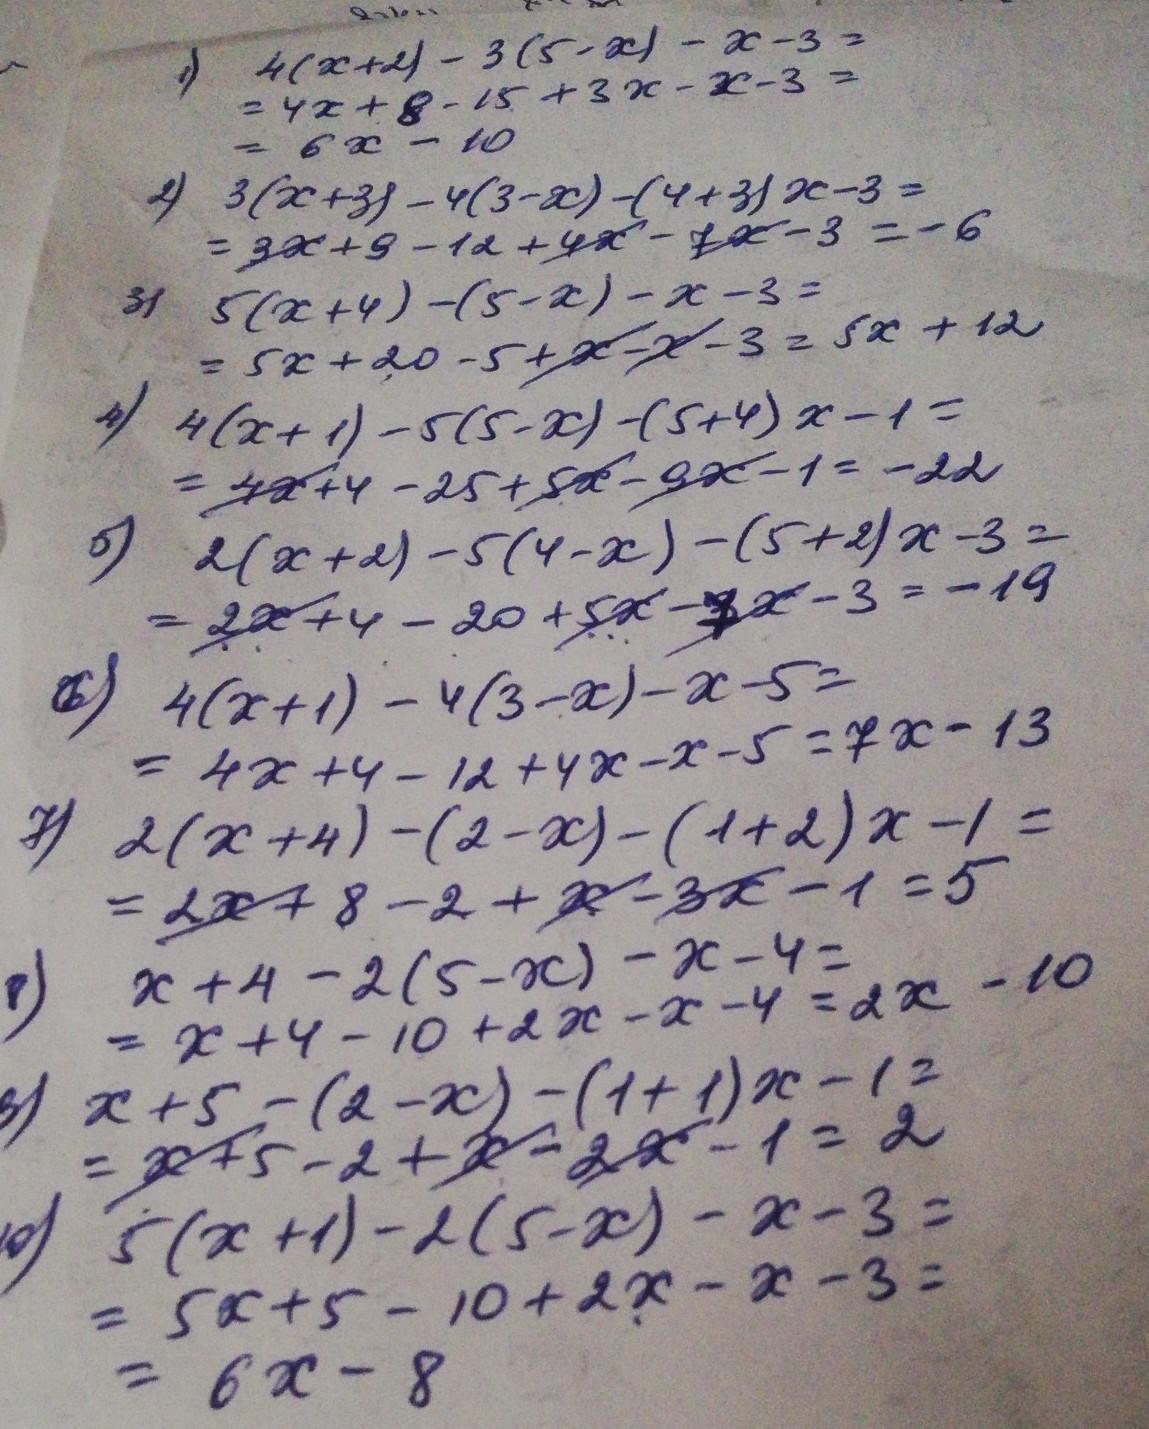 1) 4(x+2) - 3(5-x) - x - 3 =
= 4x + 8 - 15 + 3x - x - 3 =
= 6x - 10
2) 3(x+3) - 4(3-x) - (4+3)x - 3 =
= 3x + 9 - 12 + 4x - 7x - 3 = -6
3) 5(x+4) - (5-x) - x - 3 =
= 5x + 20 - 5 + x - x - 3 = 5x + 12
4) 4(x+1) - 5(5-x) - (5+4)x - 1 =
= 4x + 4 - 25 + 5x - 9x - 1 = -22
5) 2(x+2) - 5(4-x) - (5+2)x - 3 =
= 2x + 4 - 20 + 5x - 7x - 3 = -19
6) 4(x+1) - 4(3-x) - x - 5 =
= 4x + 4 - 12 + 4x - x - 5 = 7x - 13
7) 2(x+4) - (2-x) - (1+2)x - 1 =
= 2x + 8 - 2 + x - 3x - 1 = 5
8) x + 4 - 2(5-x) - x - 4 =
= x + 4 - 10 + 2x - x - 4 = 2x - 10
9) x + 5 - (2-x) - (1+1)x - 1 =
= x + 5 - 2 + x - 2x - 1 = 2
10) 5(x+1) - 2(5-x) - x - 3 =
= 5x + 5 - 10 + 2x - x - 3 =
= 6x - 8